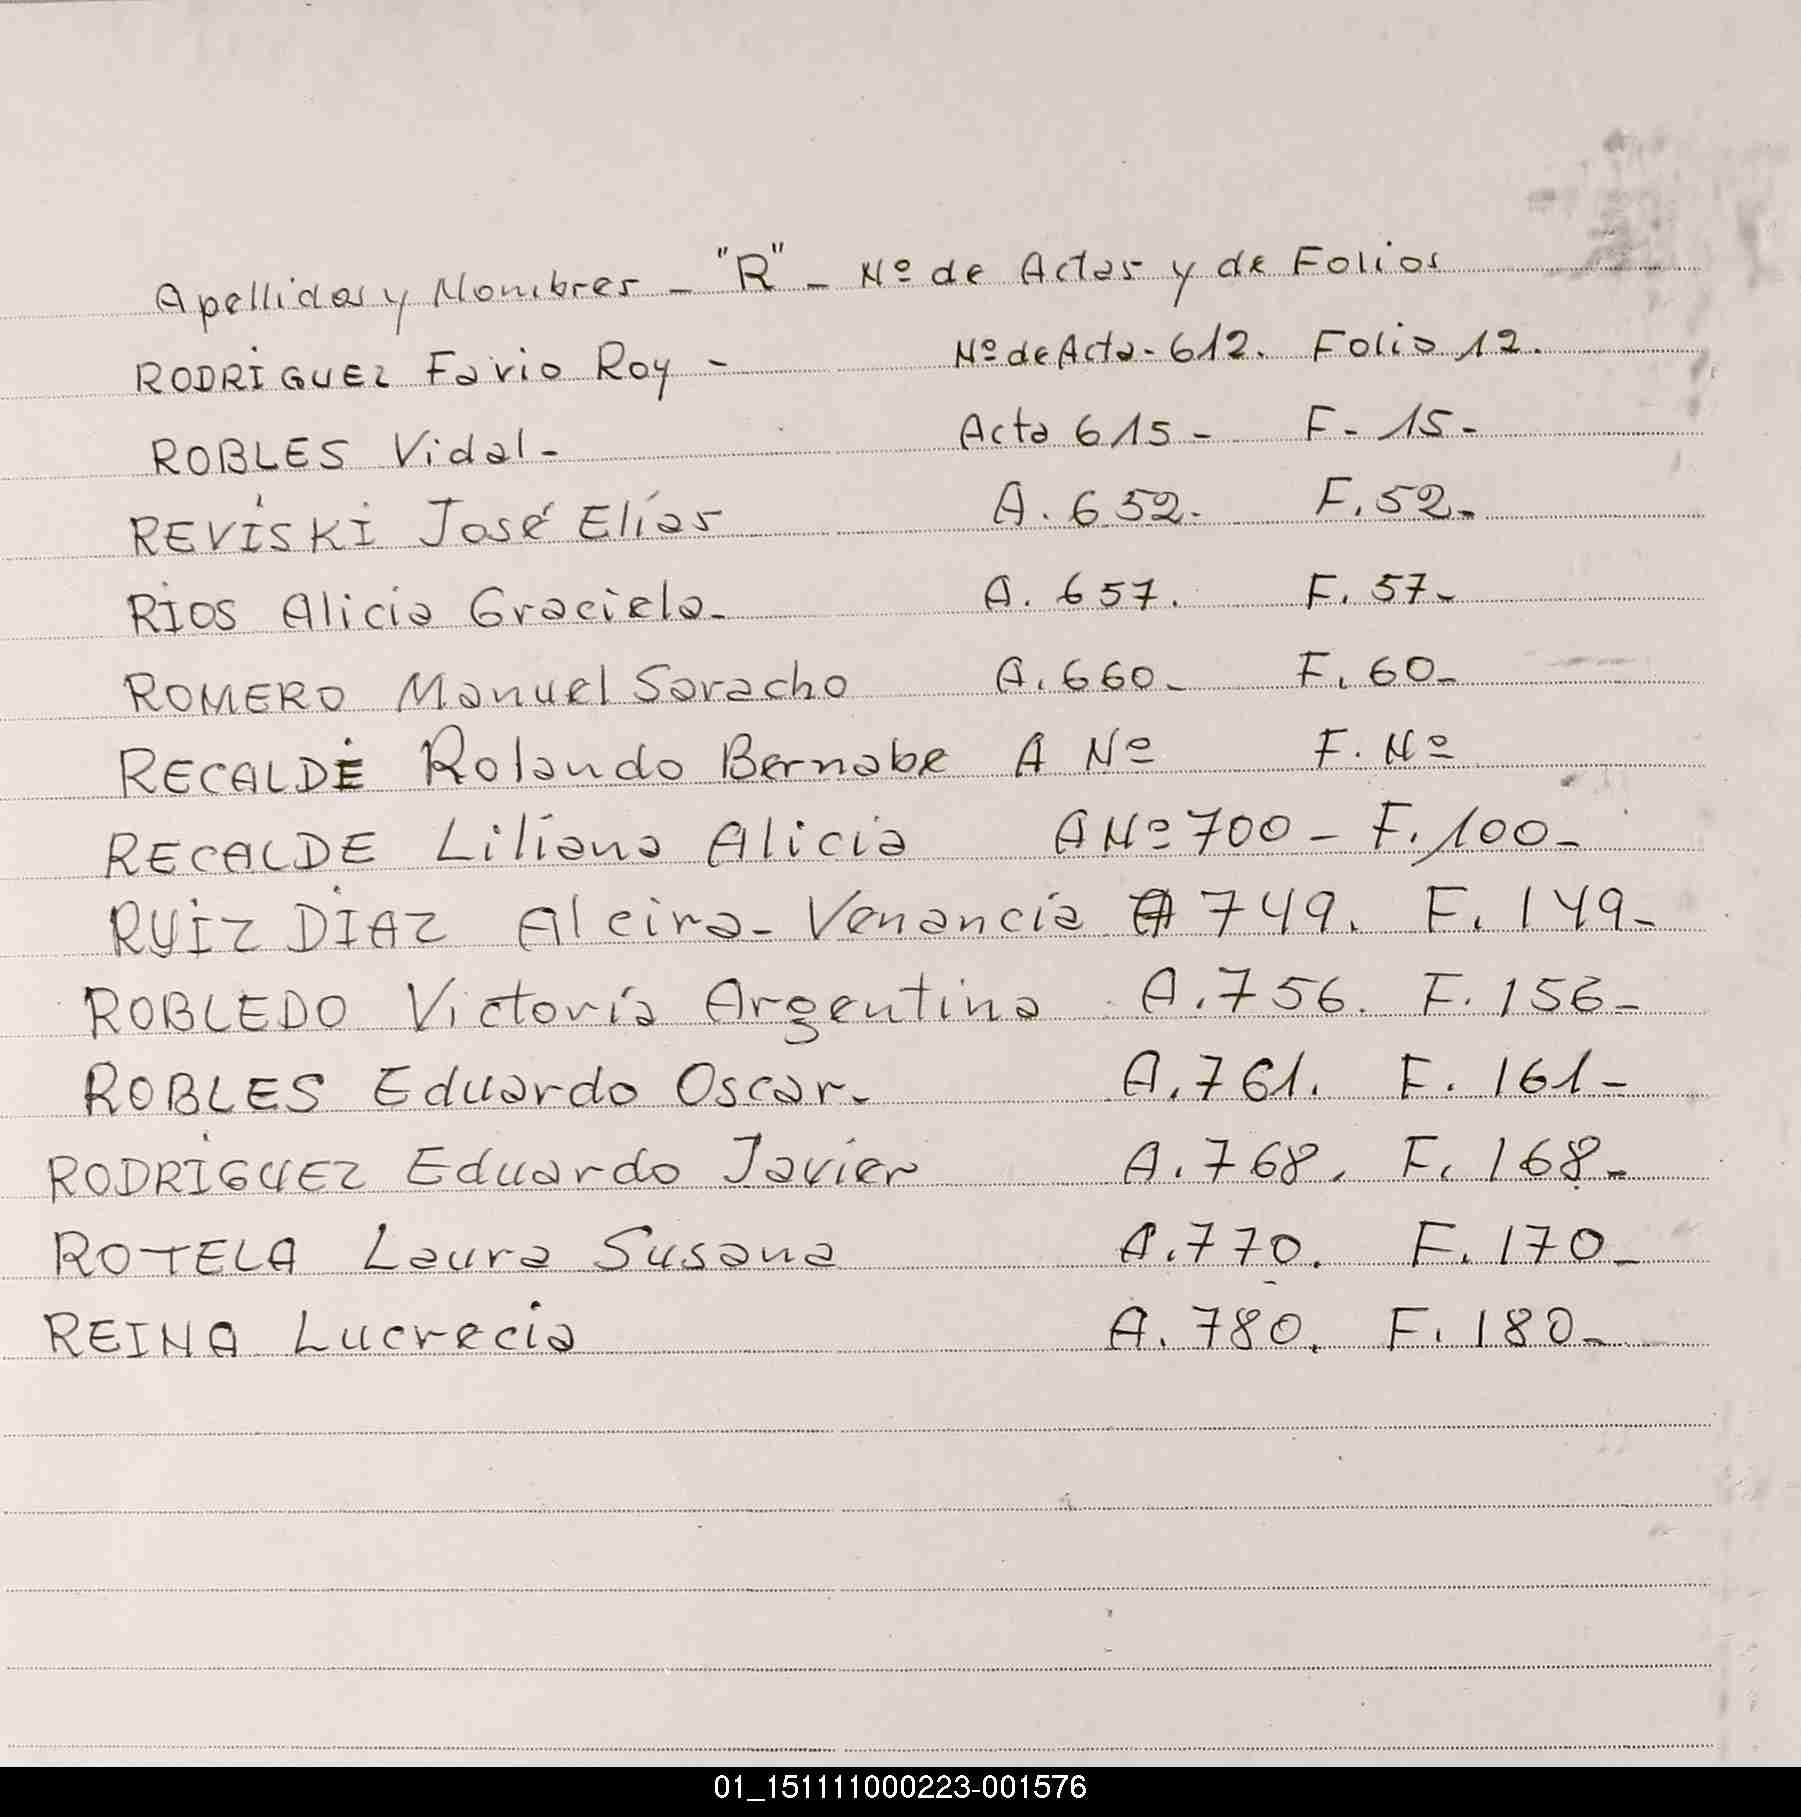 Apellidos y Nombres - "R" - Nº de Actas y de Folios
RODRIGUEZ Favio Roy - Nº de Acta - 612. Folio 12.
ROBLES Vidal - Acta 615 - F - 15 -
REVISKI José Elías A. 652. F. 52 -
RIOS Alicia Graciela - A. 657. F. 57 -
ROMERO Manuel Saracho A. 660 - F. 60 -
RECALDE Rolando Bernabe A Nº F. Nº
RECALDE Liliana Alicia A Nº 700 - F. 100 -
RUIZ DIAZ Alcira - Venancia A 749. F. 149 -
ROBLEDO Victoria Argentina A. 756. F. 156 -
ROBLES Eduardo Oscar - A. 761. F. 161 -
RODRIGUEZ Eduardo Javier A. 768. F. 168 -
ROTELA Laura Susana A. 770. F. 170 -
REINA Lucrecia A. 780. F. 180 -
01_151111000223-001576